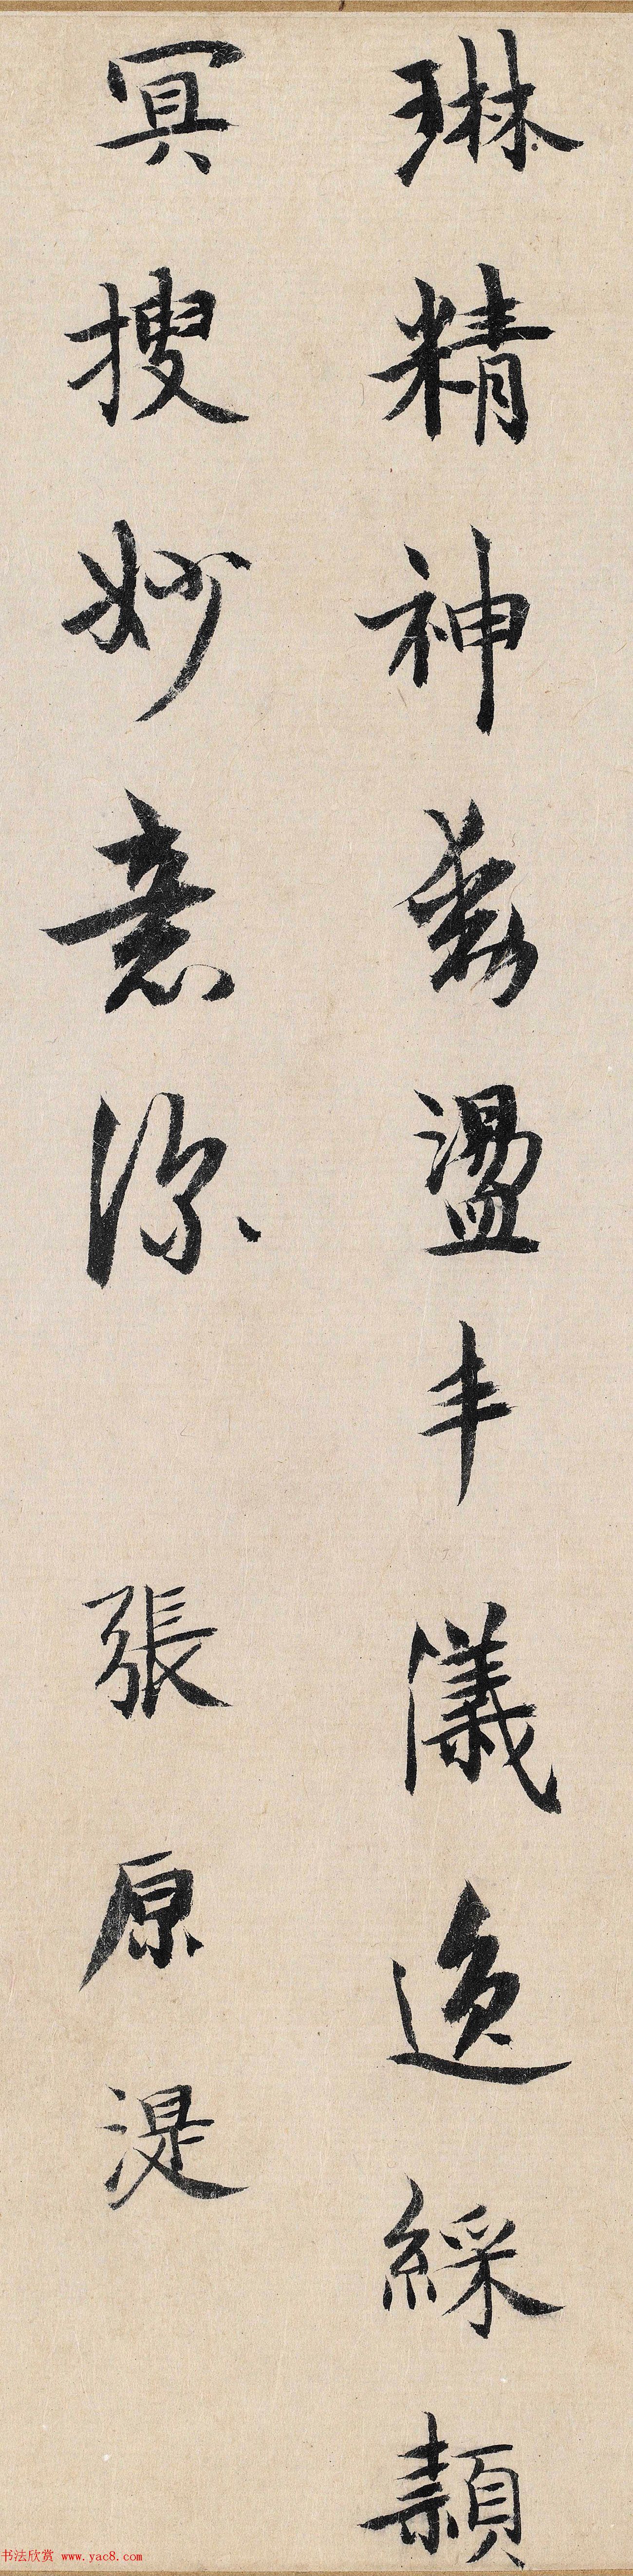 琳精神盪丰儀逸綵
冥搜妙意深 張原湜
书法欣赏 www.yac8.com